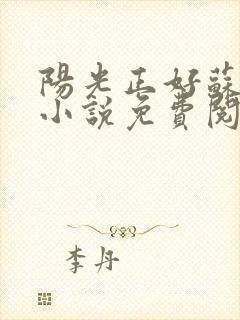 陽光正好蘇
小說免費閱
李丹